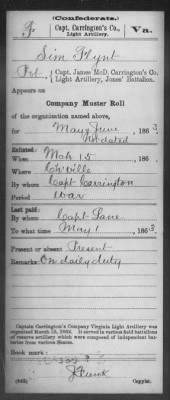 (Confederate.)
F Capt. Carrington's Co., Light Artillery. Va.
Sim Flynt
Pvt., Capt. James McD. Carrington's Co.,
Light Artillery, Jones' Battalion.
Appears on
Company Muster Roll
of the organization named above,
for May & June, 1863.
not dated
Enlisted:
When Mch 15, 186
Where Ch'ville
By whom Capt Carrington
Period War
Last paid:
By whom Capt Lane
To what time May 1, 1863.
Present or absent Present
Remarks: On daily duty
Captain Carrington's Company Virginia Light Artillery was
organized March 13, 1862. It served in various field battalions
of reserve artillery which were composed of independent bat-
teries from various States.
Book mark:
(642) Copyist.